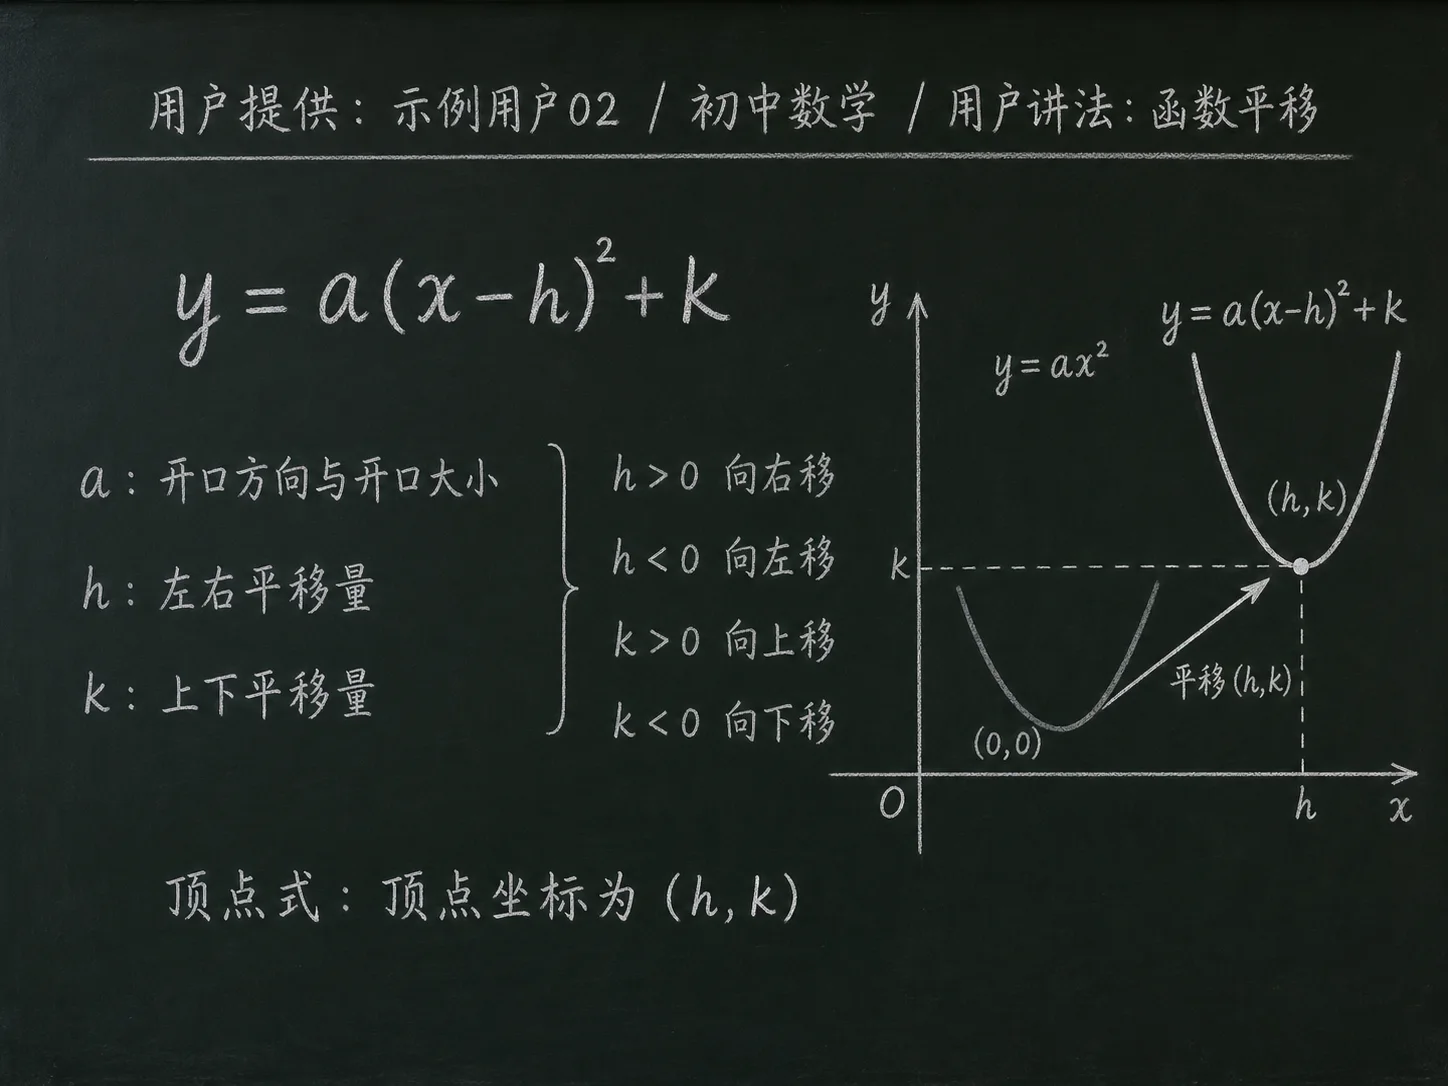 用户提供：示例用户02 / 初中数学 / 用户讲法：函数平移
y = a(x-h)²+k
a：开口方向与开口大小
h：左右平移量
k：上下平移量
h > 0 向右移
h < 0 向左移
k > 0 向上移
k < 0 向下移
顶点式：顶点坐标为 (h, k)
y
y = a(x-h)²+k
y = ax²
(h, k)
k
平移(h,k)
(0,0)
O
h
x